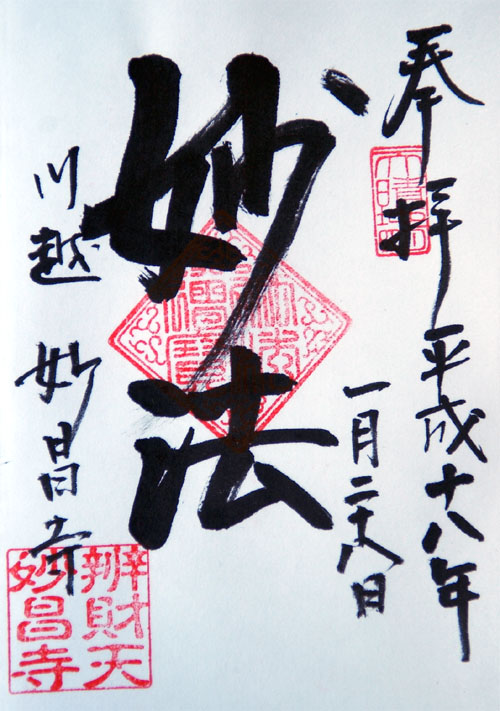 奉拝
平成十八年
一月二十八日
妙法
川越
妙昌寺
辨財天
妙昌寺